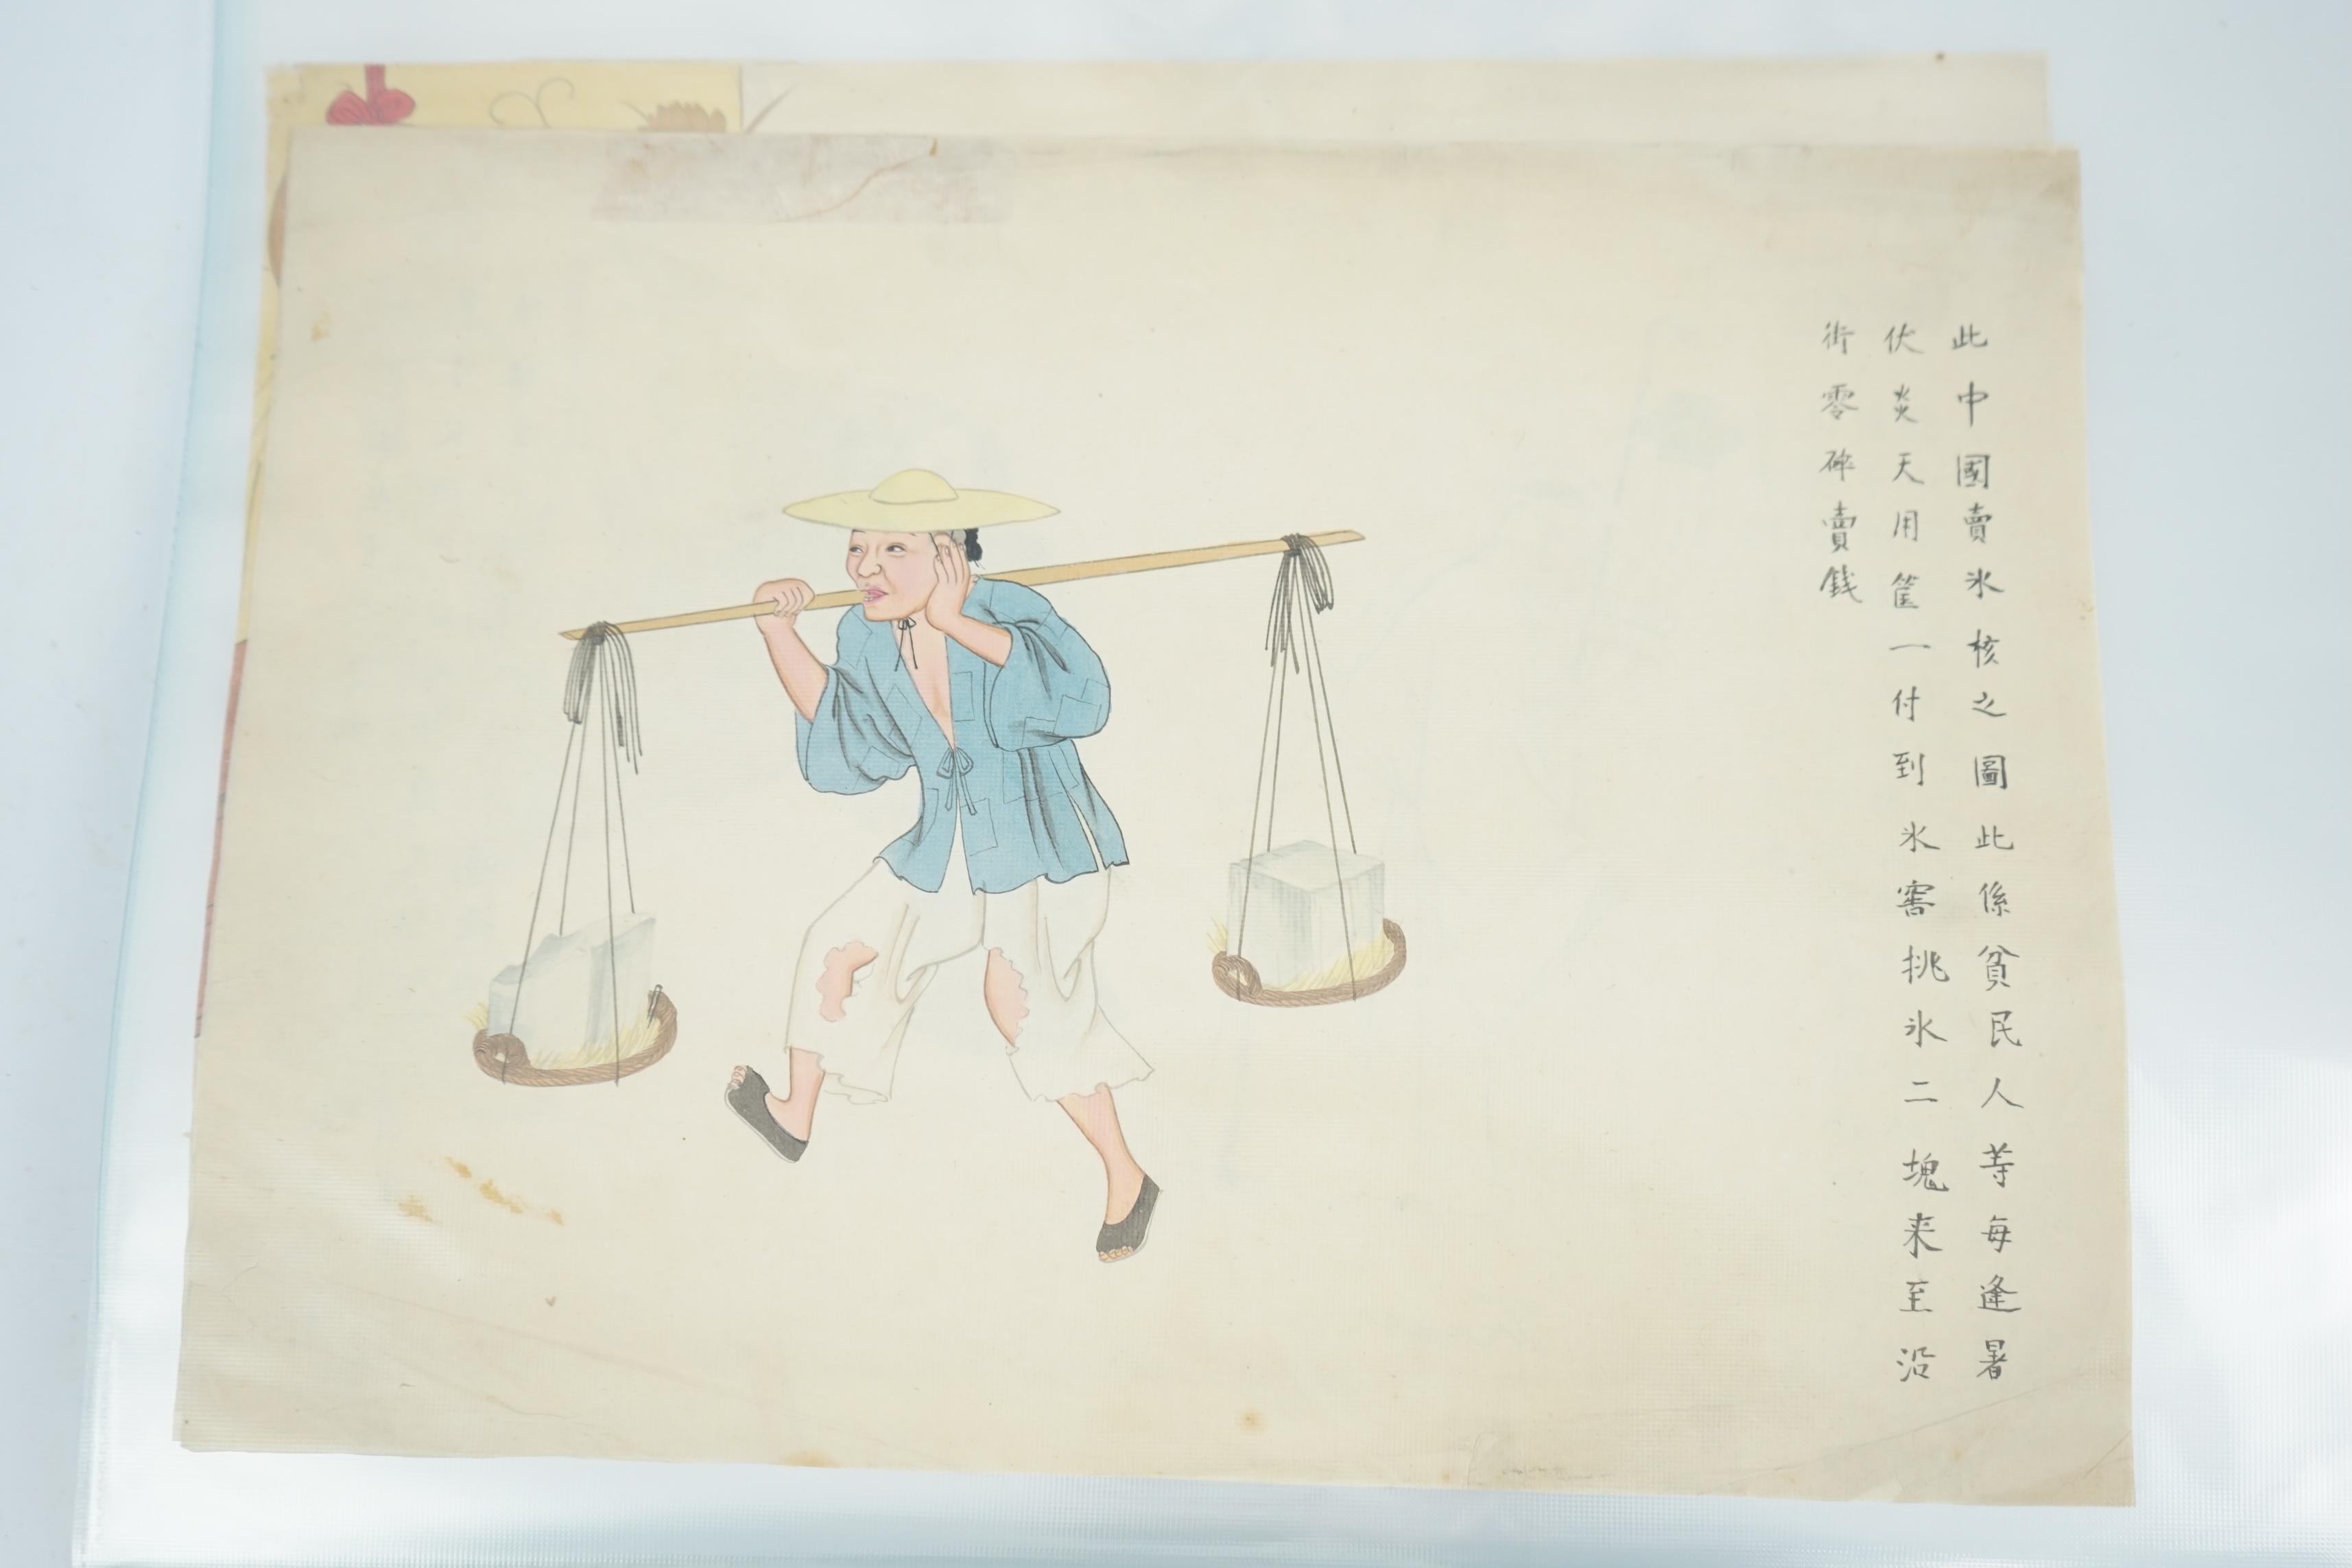 此中國賣氷核之圖此係貧民人等每逢暑
伏炎天用筐一付到氷窖挑氷二塊来至沿
街零碎賣錢